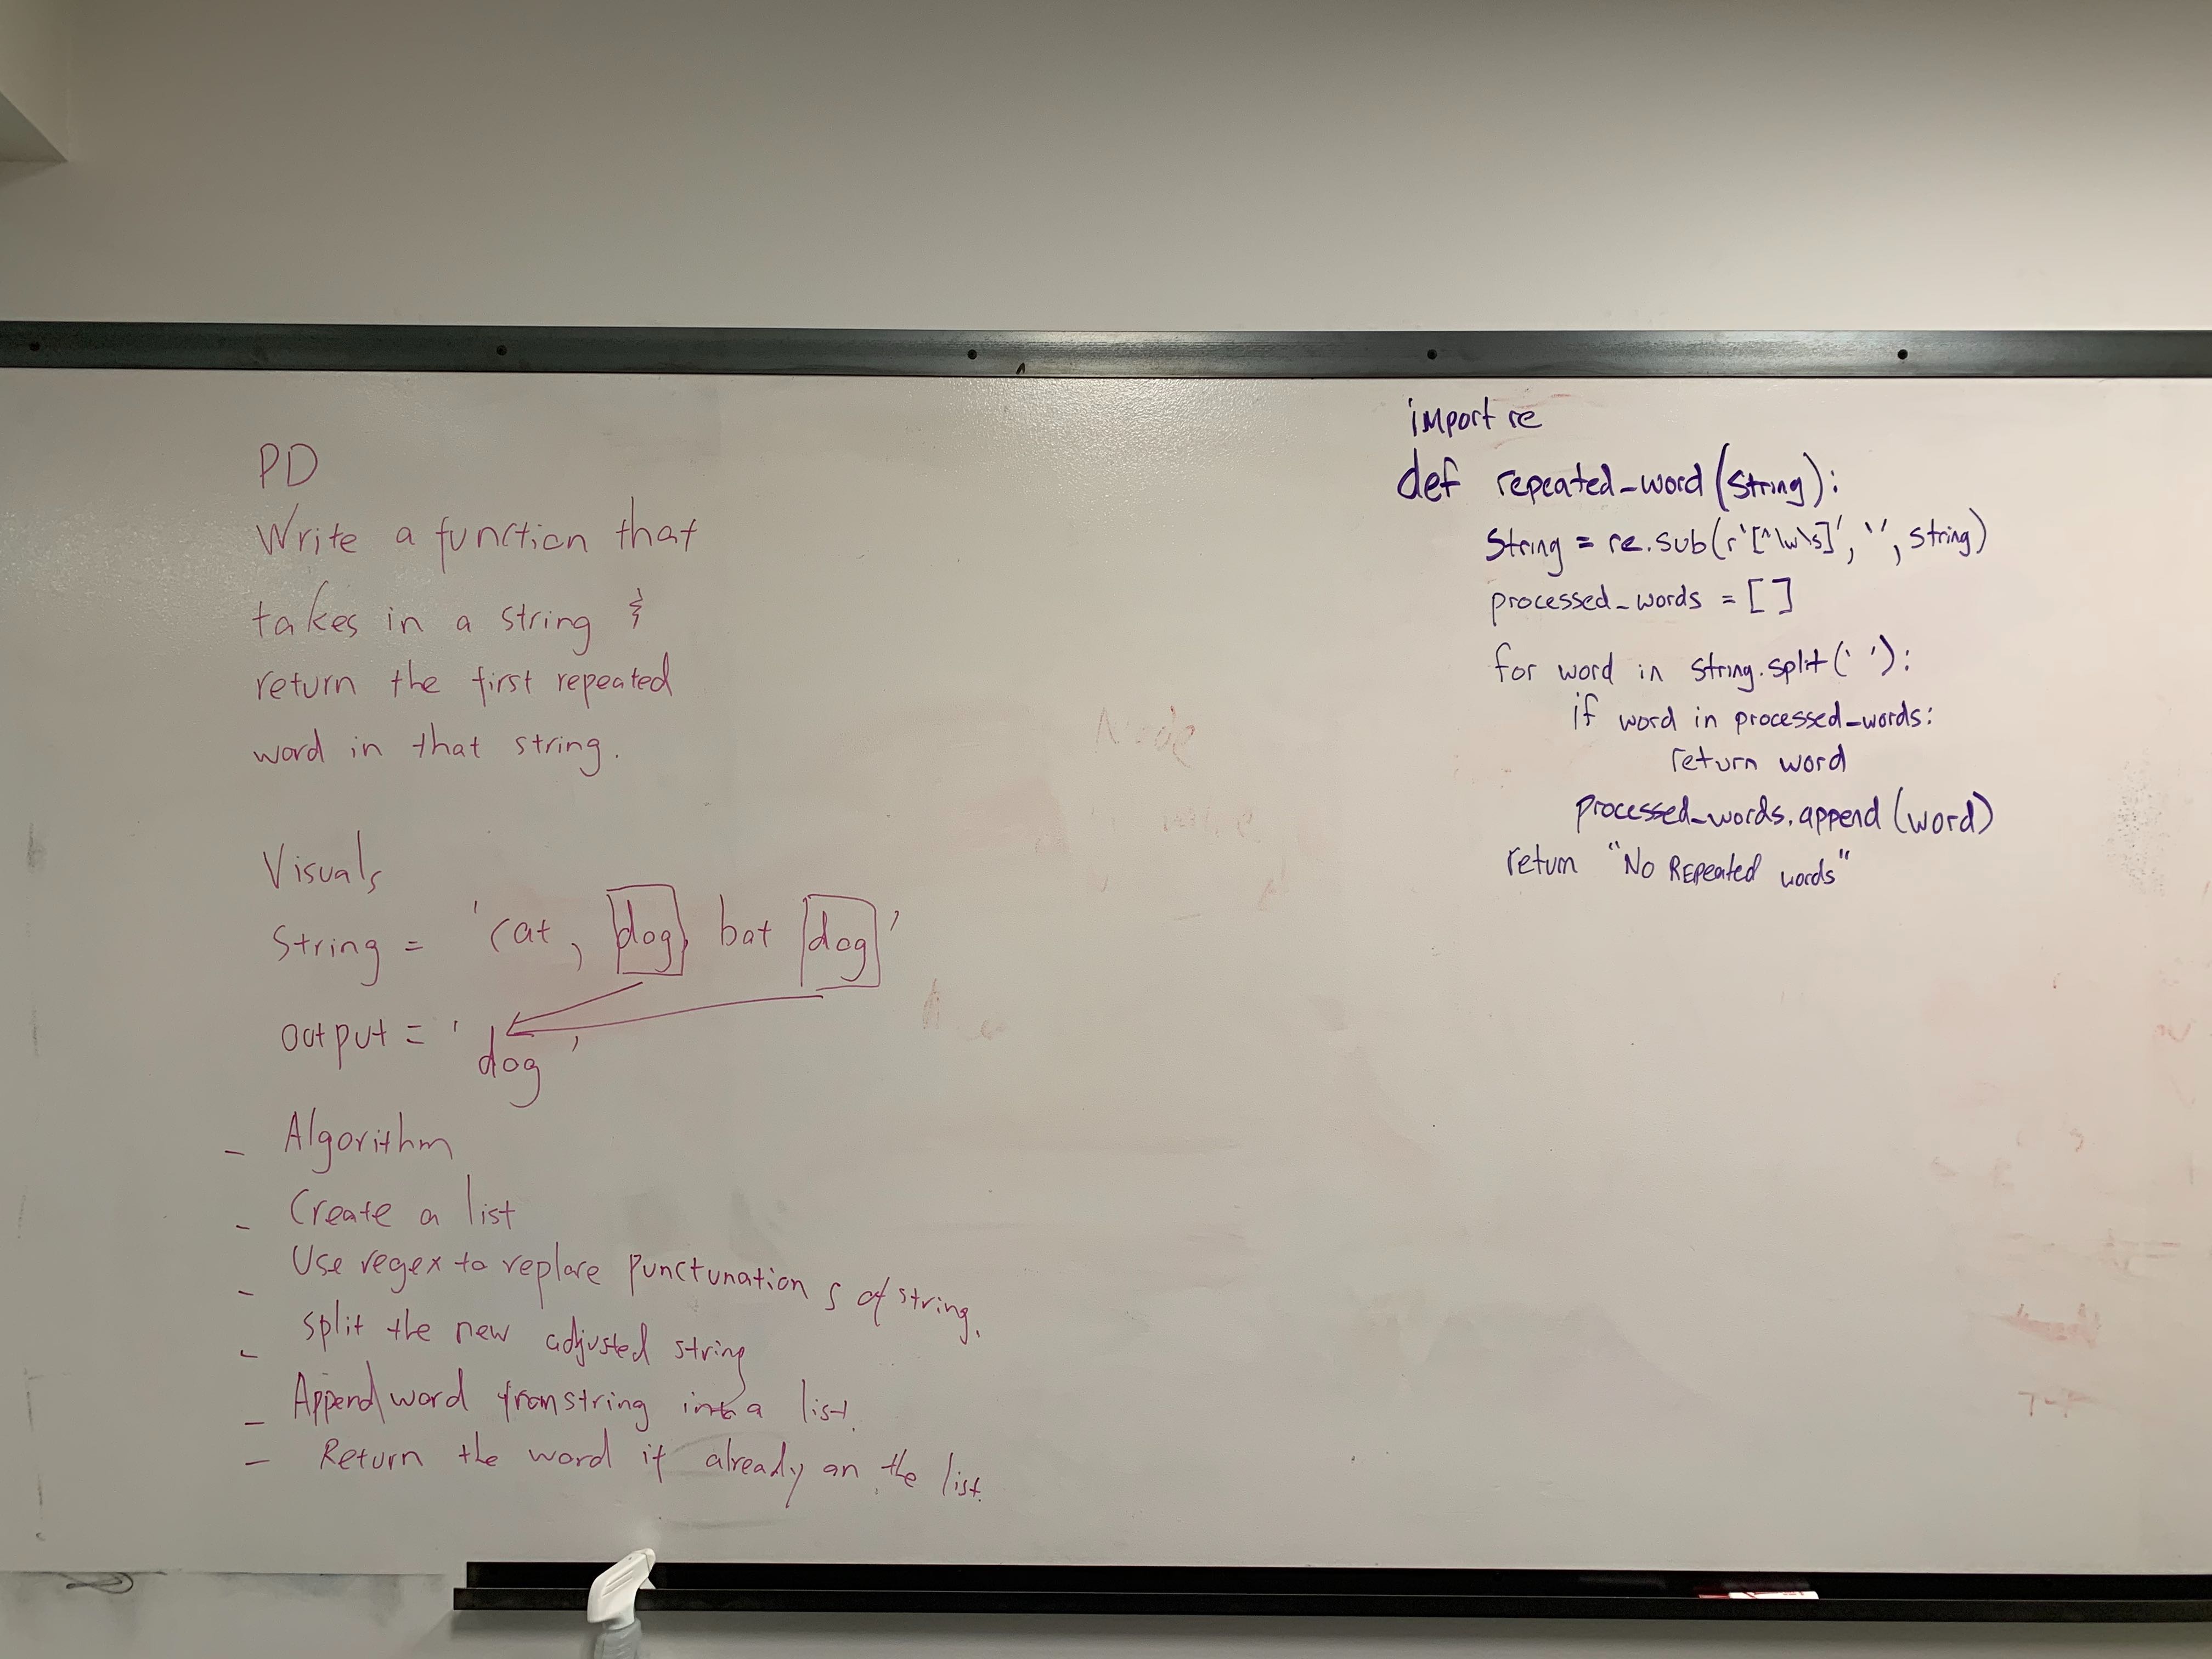 PD
Write a function that
takes in a string &
return the first repeated
word in that string.
Visuals
String = 'cat, dog, bat dog'
output = 'dog'
- Algorithm
- Create a list
- Use regex to replace punctunation s of string.
- split the new adjusted string
- Append word from string into a list.
- Return the word if already on the list.
import re
def repeated_word(string):
string = re.sub(r'[^\w\s]', '', string)
processed_words = []
for word in string.split(' '):
if word in processed_words:
return word
processed_words.append(word)
return "No Repeated words"